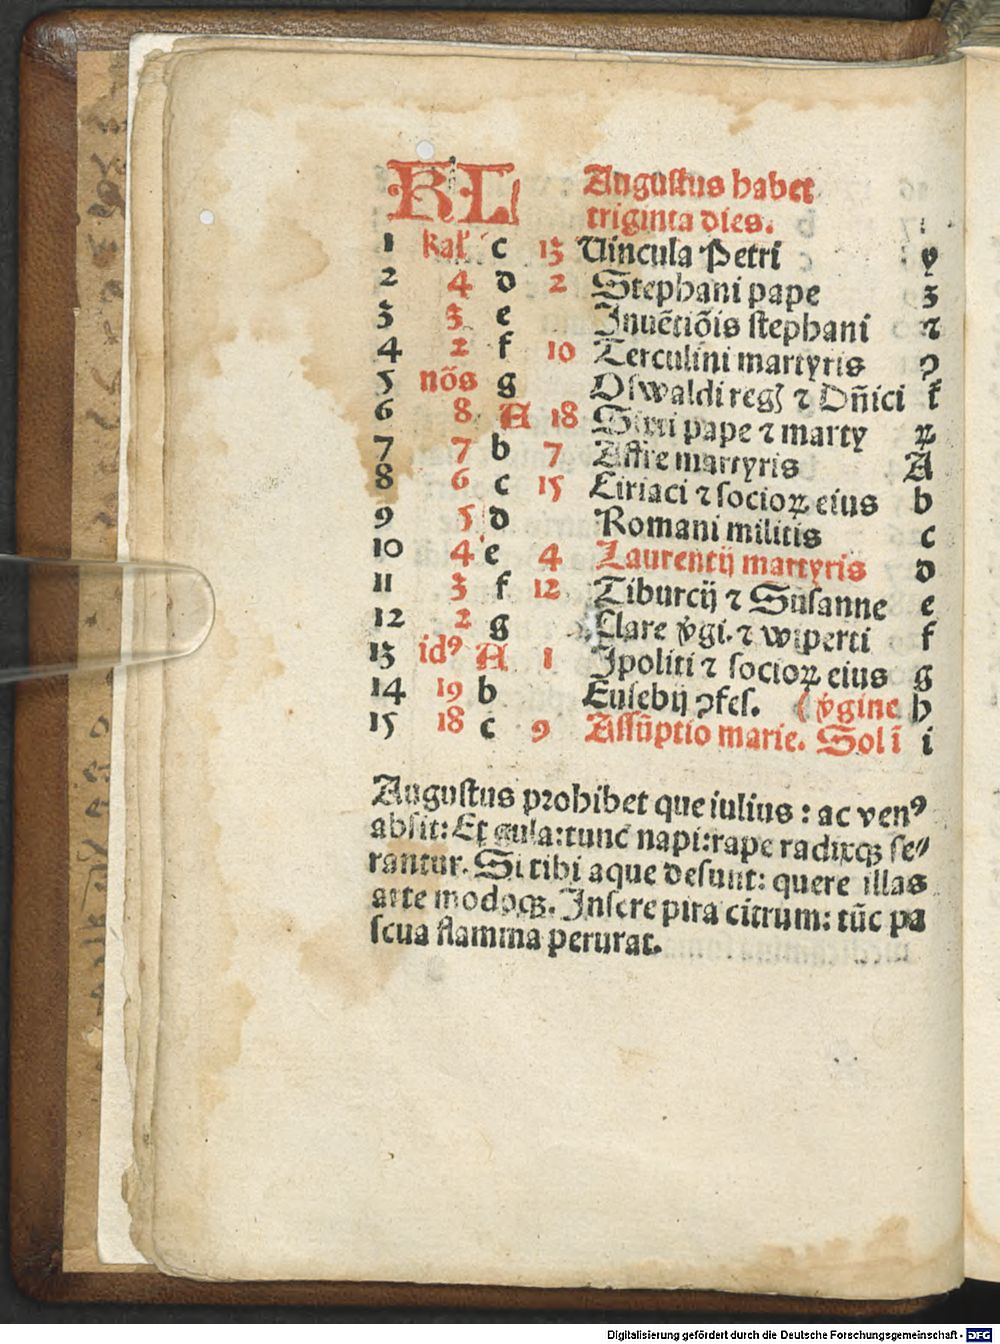 KL Auguſtus habet
triginta dies.
1 kal' c 13 Uincula Petri ẏ
2 4 d 2 Stephani pape z
3 3 e Inuẽtiõis ſtephani ⁊
4 2 f 10 Terculini martyris ꝯ
5 nõs g Oſwaldi reg⁊ Dñici
6 8 A 18 Sixti pape ⁊ marty ꝝ
7 7 b 7 Affre martyris A
8 6 c 15 Ciriaci ⁊ socioꝝ eius b
9 5 d Romani militis c
10 4 e 4 Laurentij martyris d
11 3 f 12 Tiburcij ⁊ Suſanne e
12 2 g Clare v̾gi. ⁊ wiperti f
13 idꝰ A 1 Ipoliti ⁊ ſocioꝝ eius g
14 19 b Euſebij ꝯfeſ. (v̾gine h
15 18 c 9 Aſſũptio marie. Sol ĩ i
Auguſtus prohibet que iulius : ac venꝰ
abſit: Et gula: tunc napi: rape radixqꝫ ſe⸗
rantur. Si tibi aque deſunt: quere illas
arte modoqꝫ. Inſere pira citrum: tũc pa
ſcua flamma perurat.
Digitalisierung gefördert durch die Deutsche Forschungsgemeinschaft - DFG